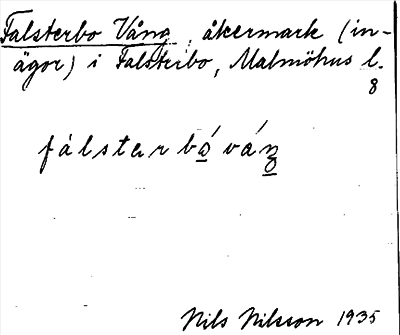 Falsterbo Vång, åkermark (in-
ägor) i Falsterbo, Malmöhus l.
8
fálsterbǫ́váŋ
Nils Nilsson 1935